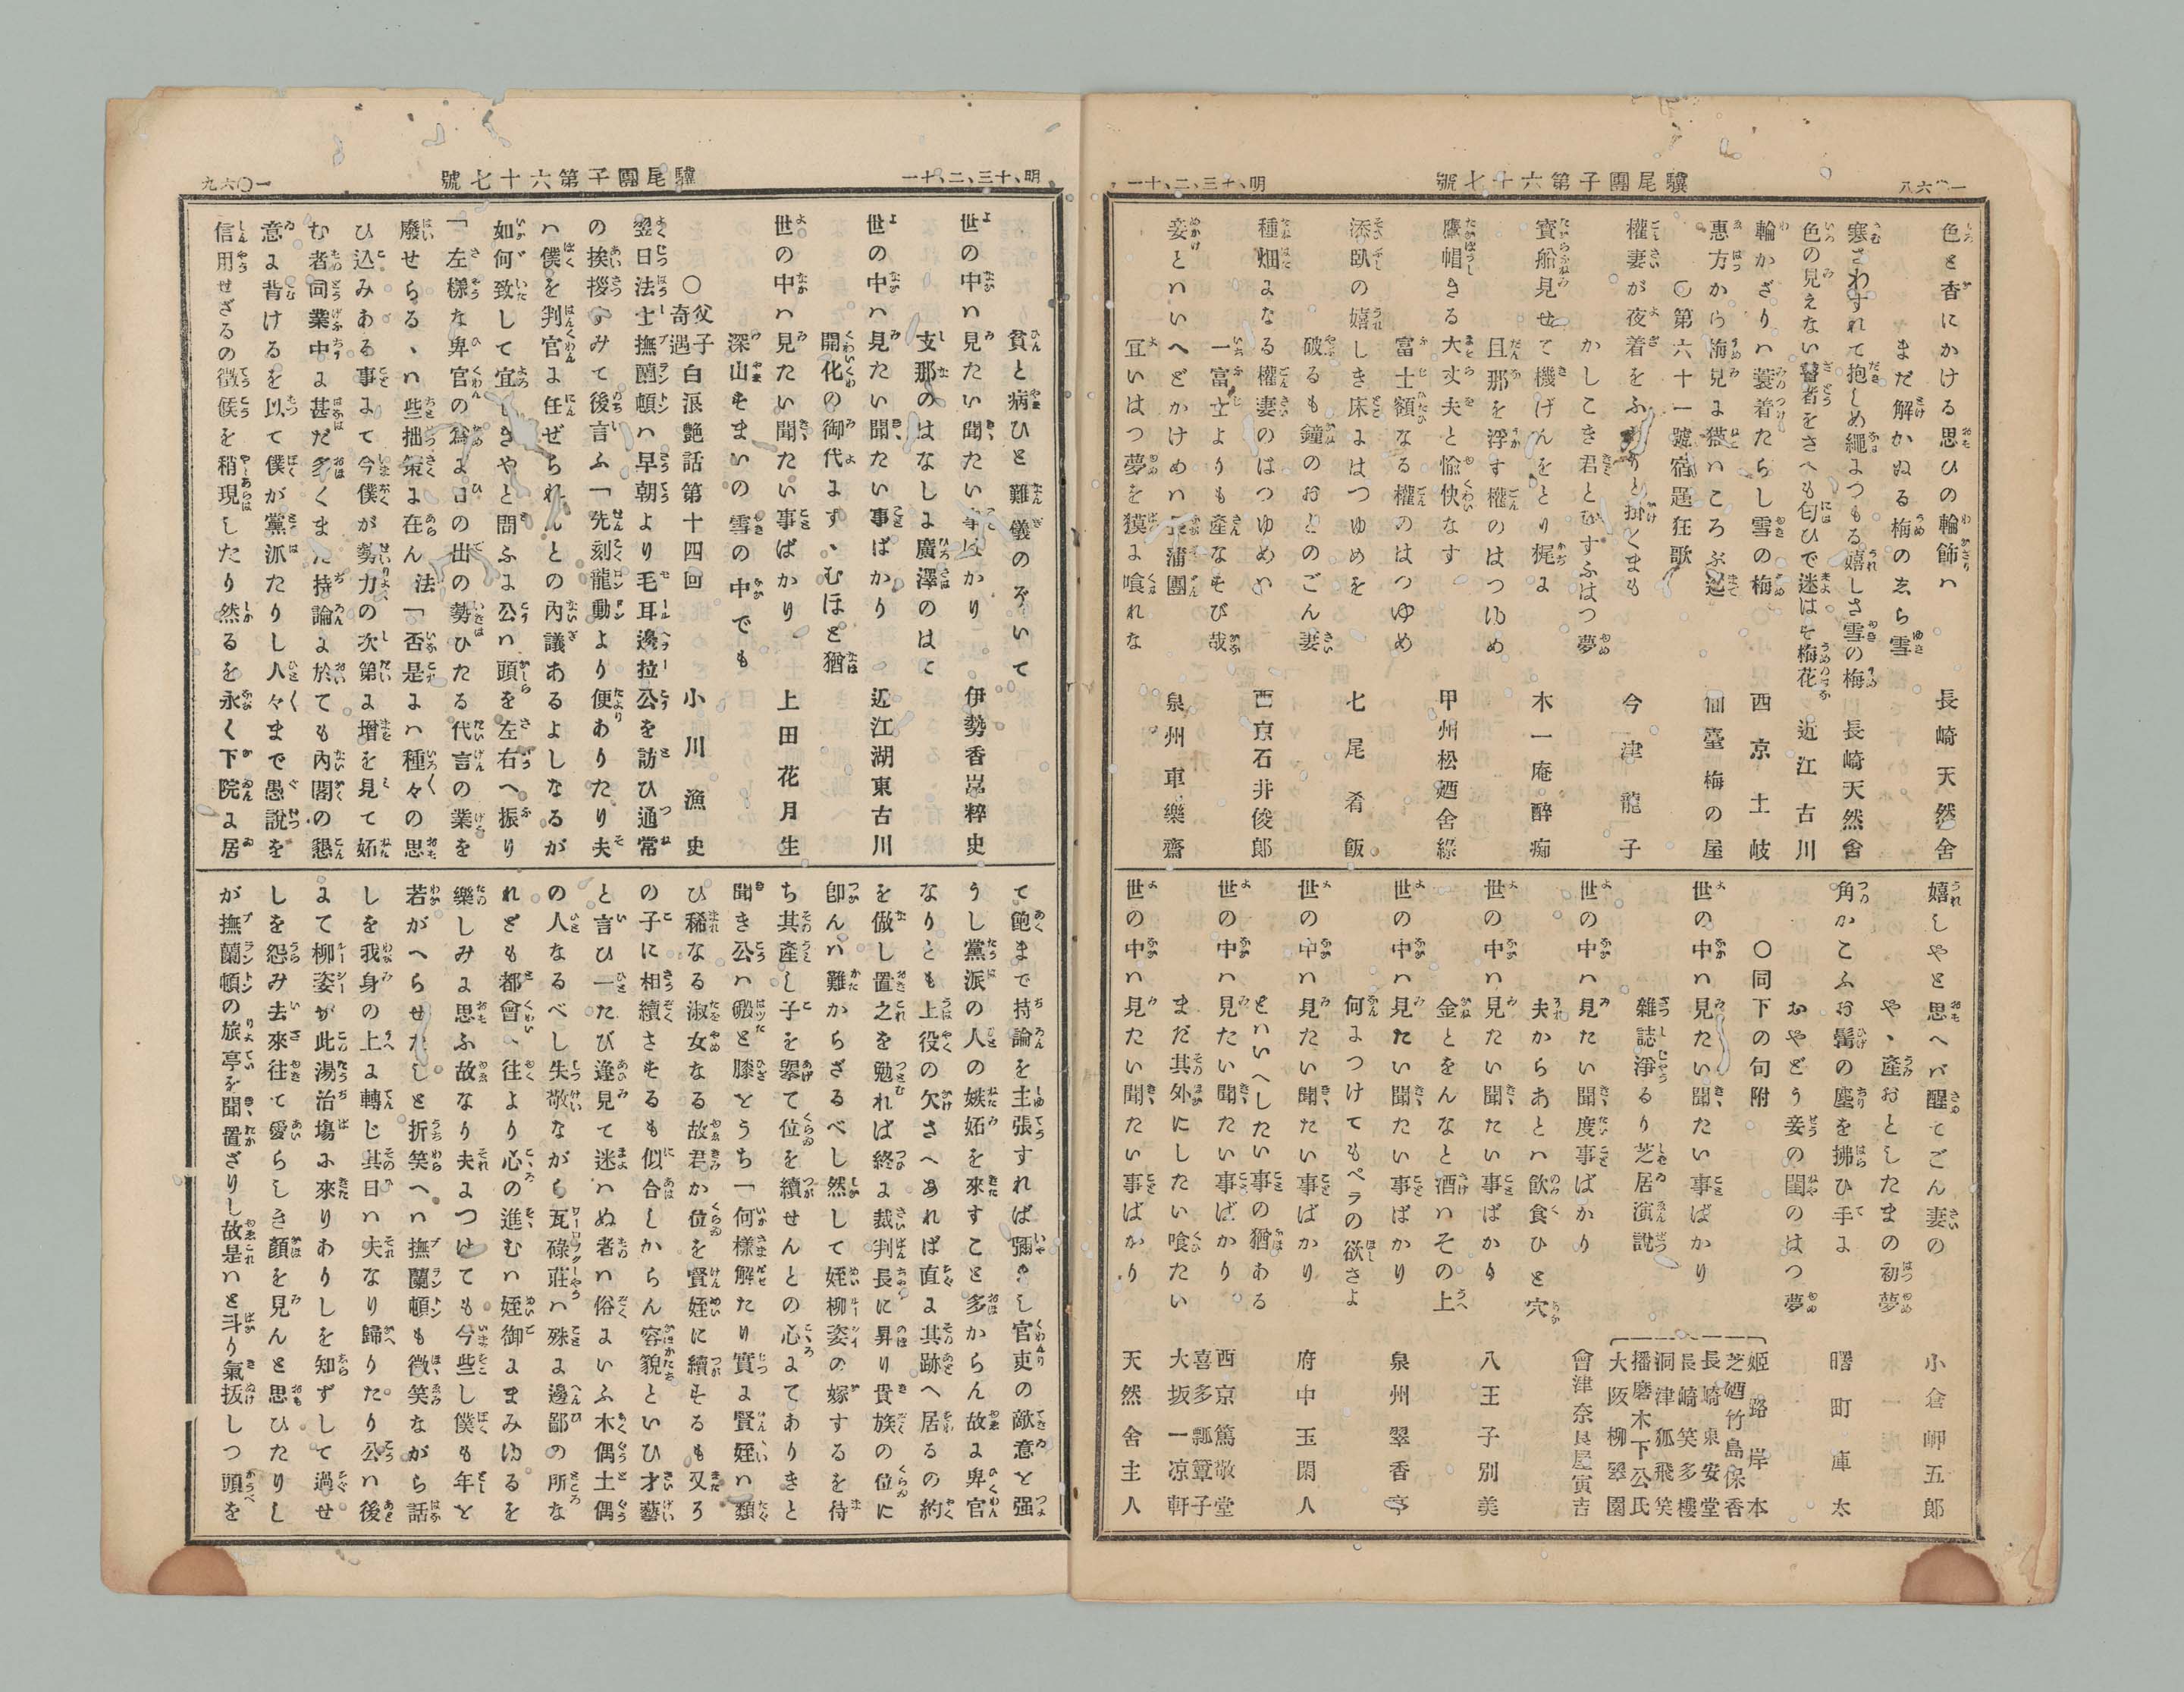 驥尾團子第六十七號
明、十三、二、十一
色と香にかける思ひの輪飾ハ
まだ解かぬる梅のゑら雪
長崎天然舍
寒さわすれて抱しめ繩よつもる嬉しさ雪の梅
長崎天然舍
色の見えない瞽者をさへも匂ひで迷はそ梅花
近江古川
輪かざりハ蓑着たらし雪の梅
西京土岐
惠方から梅見よ猫いころぶ
仙臺梅の屋
〇第六十一號宿題狂歌
權妻が夜着をふわりと掛くまも
かしこき君とむすふはつ夢
今津龍子
寳船見せて機げんをとり梶よ
且那を浮す權のはつゆめ
木一庵醉痴
鷹帽きる大丈夫と愉快なす
富士額なる權のはつゆめ
甲州松廼舍綠
添臥の嬉しき床よはつゆめを
破るも鐘のおとのごん妻
七尾肴飯
種畑よなる權妻のはつゆめい
一富士よりも產なそび哉
西京石井俊郎
妾といいへどかけめハ三蒲團
宜いはつ夢を獏よ喰れな
泉州車樂齋
嬉しやと思へバ醒てごん妻の
や、產おとしたまの初夢
小倉岬五郎
角かこふお髯の塵を拂ひ手よ
おやどう妾の閨のはつ夢
曙町庫太
〇同下の句附
世の中ハ見たい聞たい事ばかり
雜誌淨るり芝居演說
姬路岸本
芝廼竹島保香
長崎東安堂
長崎笑多樓
洞津狐飛笑
播磨木下公氏
大阪柳翠園
世の中ハ見たい聞度事ばかり
夫からあとハ飮食ひと穴
會津奈良屋寅吉
世の中ハ見たい聞たい事ばかり
金とをんなと酒ハその上
八王子別美
世の中ハ見たい聞たい事ばかり
何よつけてもペラの欲さよ
泉州翠香亭
世の中ハ見たい聞たい事ばかり
といいへしたい事の猶ある
府中玉閑人
世の中ハ見たい聞たい事ばかり
まだ其外にしたい喰たい
西京篤敬堂
喜多瓢簞子
大坂一凉軒
世の中ハ見たい聞たい事ばかり
天然舍主人
明、十三、二、十一
驥尾團子第六十七號
一〇六九
貧と病ひと難儀のぞいて
伊勢香嵓粹史
世の中ハ見たい聞たい事ばかり
支那のはなしよ廣澤のはに
世の中ハ見たい聞たい事ばかり
近江湖東古川
開化の御代ます、むほど猶
世の中ハ見たい聞たい事ばかり
上田花月生
深山そまいの雪の中でも
〇父子奇遇白浪艷話第十四回
小川漁史
翌日法士撫蘭頓ハ早朝より毛耳邊拉公を訪ひ通常
の挨拶すみて後言ふ「先刻龍動より便ありたり夫
ハ僕を判官よ任ぜられんとの內議あるよしなるが
如何致して宜しきやと問ふよ公ハ頭を左右へ振り
「左樣な卑官の爲よ日の出の勢ひたる代言の業を
廢せらる、ハ些拙策よ在ん 法「否是よハ種々の思
ひ込みある事よて今僕が勢力の次第よ增を見て妬
む者同業中よ甚だ多くまた持論よ於ても內閣の懇
意よ背けるを以て僕が黨派たりし人々まで愚說を
信用せざるの徵候を稍現したり然るを永く下院よ居
て飽まで持論を主張すれば彌々し官吏の敵意と强
うし黨派の人の嫉妬を來すこと多からん故よ卑官
なりとも上役の欠さへあれば直よ其跡へ居るの約
を儆し置之を勉れば終よ裁判長に昇り貴族の位に
卽んハ難からざるべし然して姪柳姿の嫁するを待
ち其產し子を擧て位を續せんとの心よてありきと
聞き公ハ礑と膝とうち「何樣解たり實よ賢姪ハ類
ひ稀なる淑女なる故君か位を賢姪に續そるも又ろ
の子に相續さそるも似合しからん容貌といひ才藝
と言ひ一たび逢見て迷ハぬ者ハ俗よいふ木偶土偶
の人なるべし失敬ながら瓦碌莊ハ殊よ邊鄙の所な
れども都會、往より心の進むハ姪御よまみゆるを
樂しみよ思ふ故なり夫よつけても今些し僕も年と
若がへらせたしと折笑へハ撫蘭頓も微笑ながら話
しを我身の上よ轉じ其日ハ夫なり歸りたり公ハ後
よて柳姿が此湯治塲よ來りありしを知ずして過せ
しを怨み去來往て愛らしき顏を見んと思ひたりし
が撫蘭頓の旅亭を聞置ざりし故是ハと斗り氣拔しつ頭を